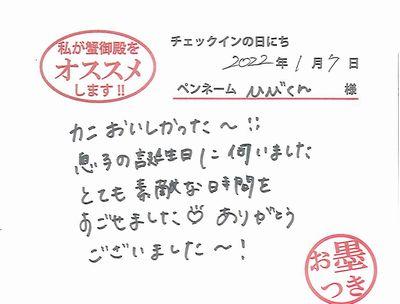 私が蟹御殿を
オススメ
します!!
チェックインの日にち
2022年1月7日
ペンネーム ひびくん 様
カニおいしかった～!!
息子の誕生日に伺いました
とても素敵な日時間を
すごせました♡ ありがとう
ございました～!
お墨
つき